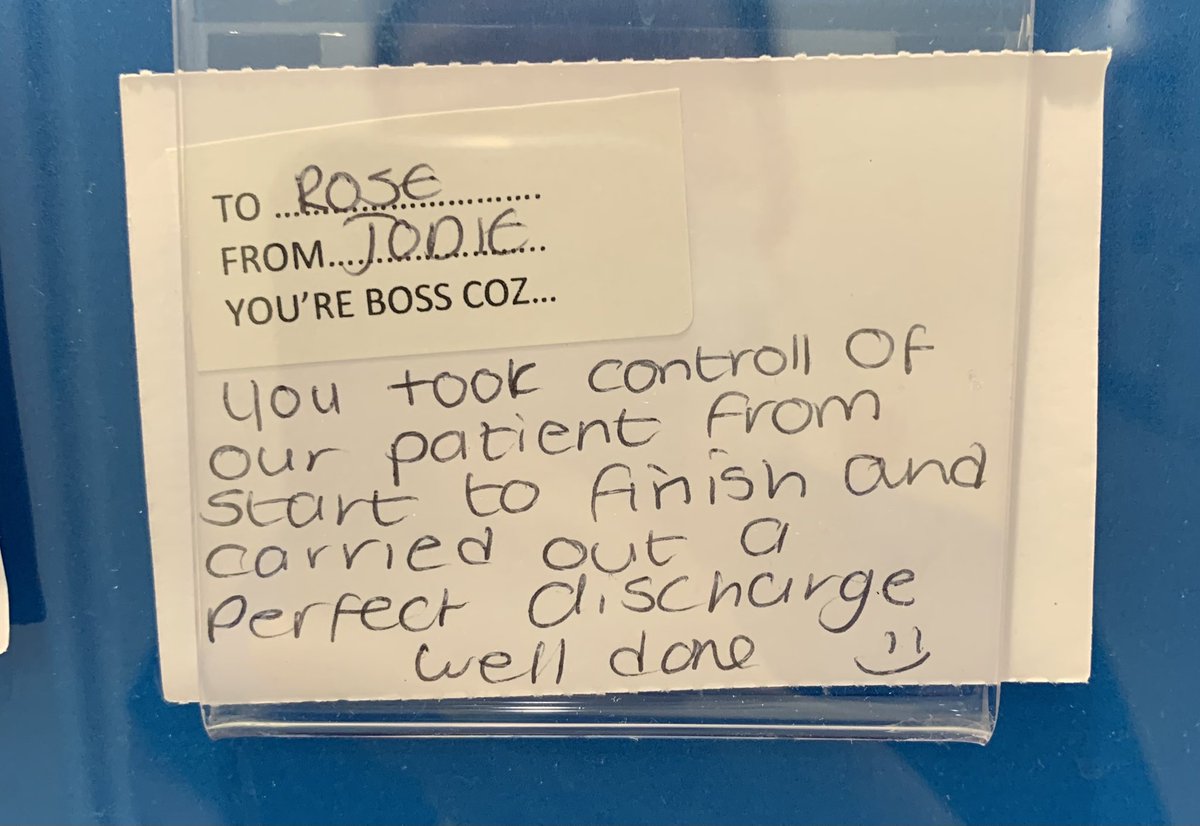 TO ...ROSE............
FROM....JODIE......
YOU'RE BOSS COZ...
You took controll of
our patient from
start to finish and
carried out a
perfect discharge
well done